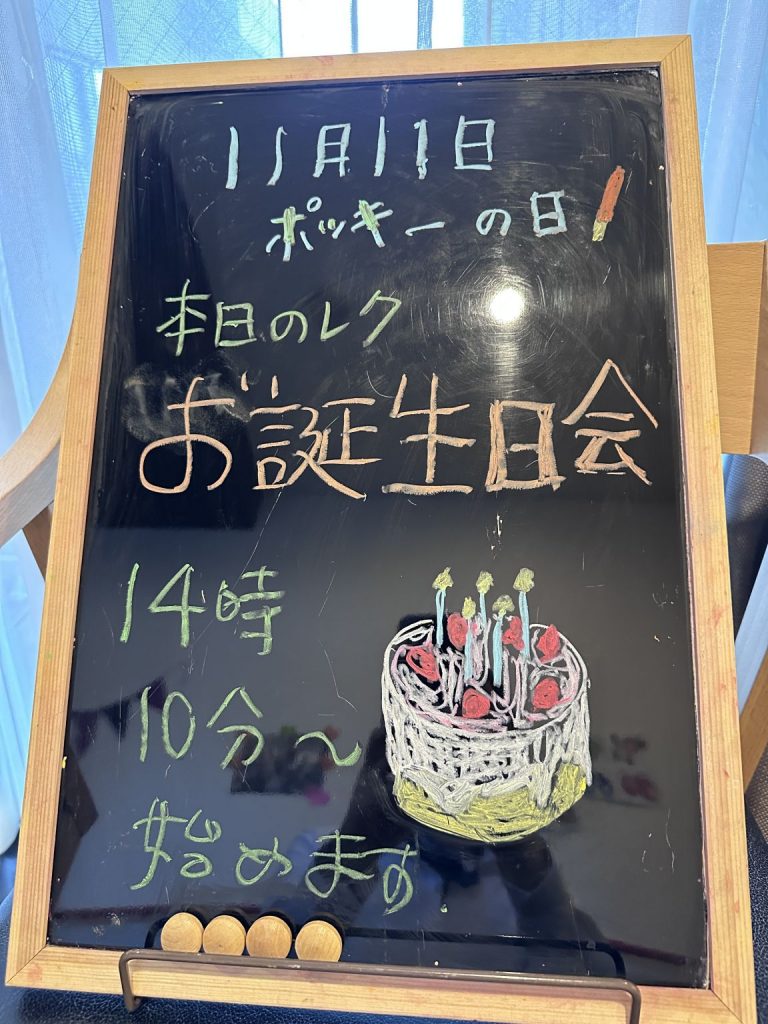 11月11日
ポッキーの日
本日のレク
お誕生日会
14時
10分～
始めます